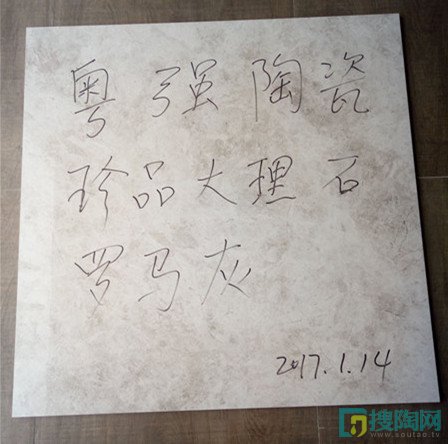 粤强陶瓷
珍品大理石
罗马灰
2017.1.14
搜陶网
www.soutao.tv